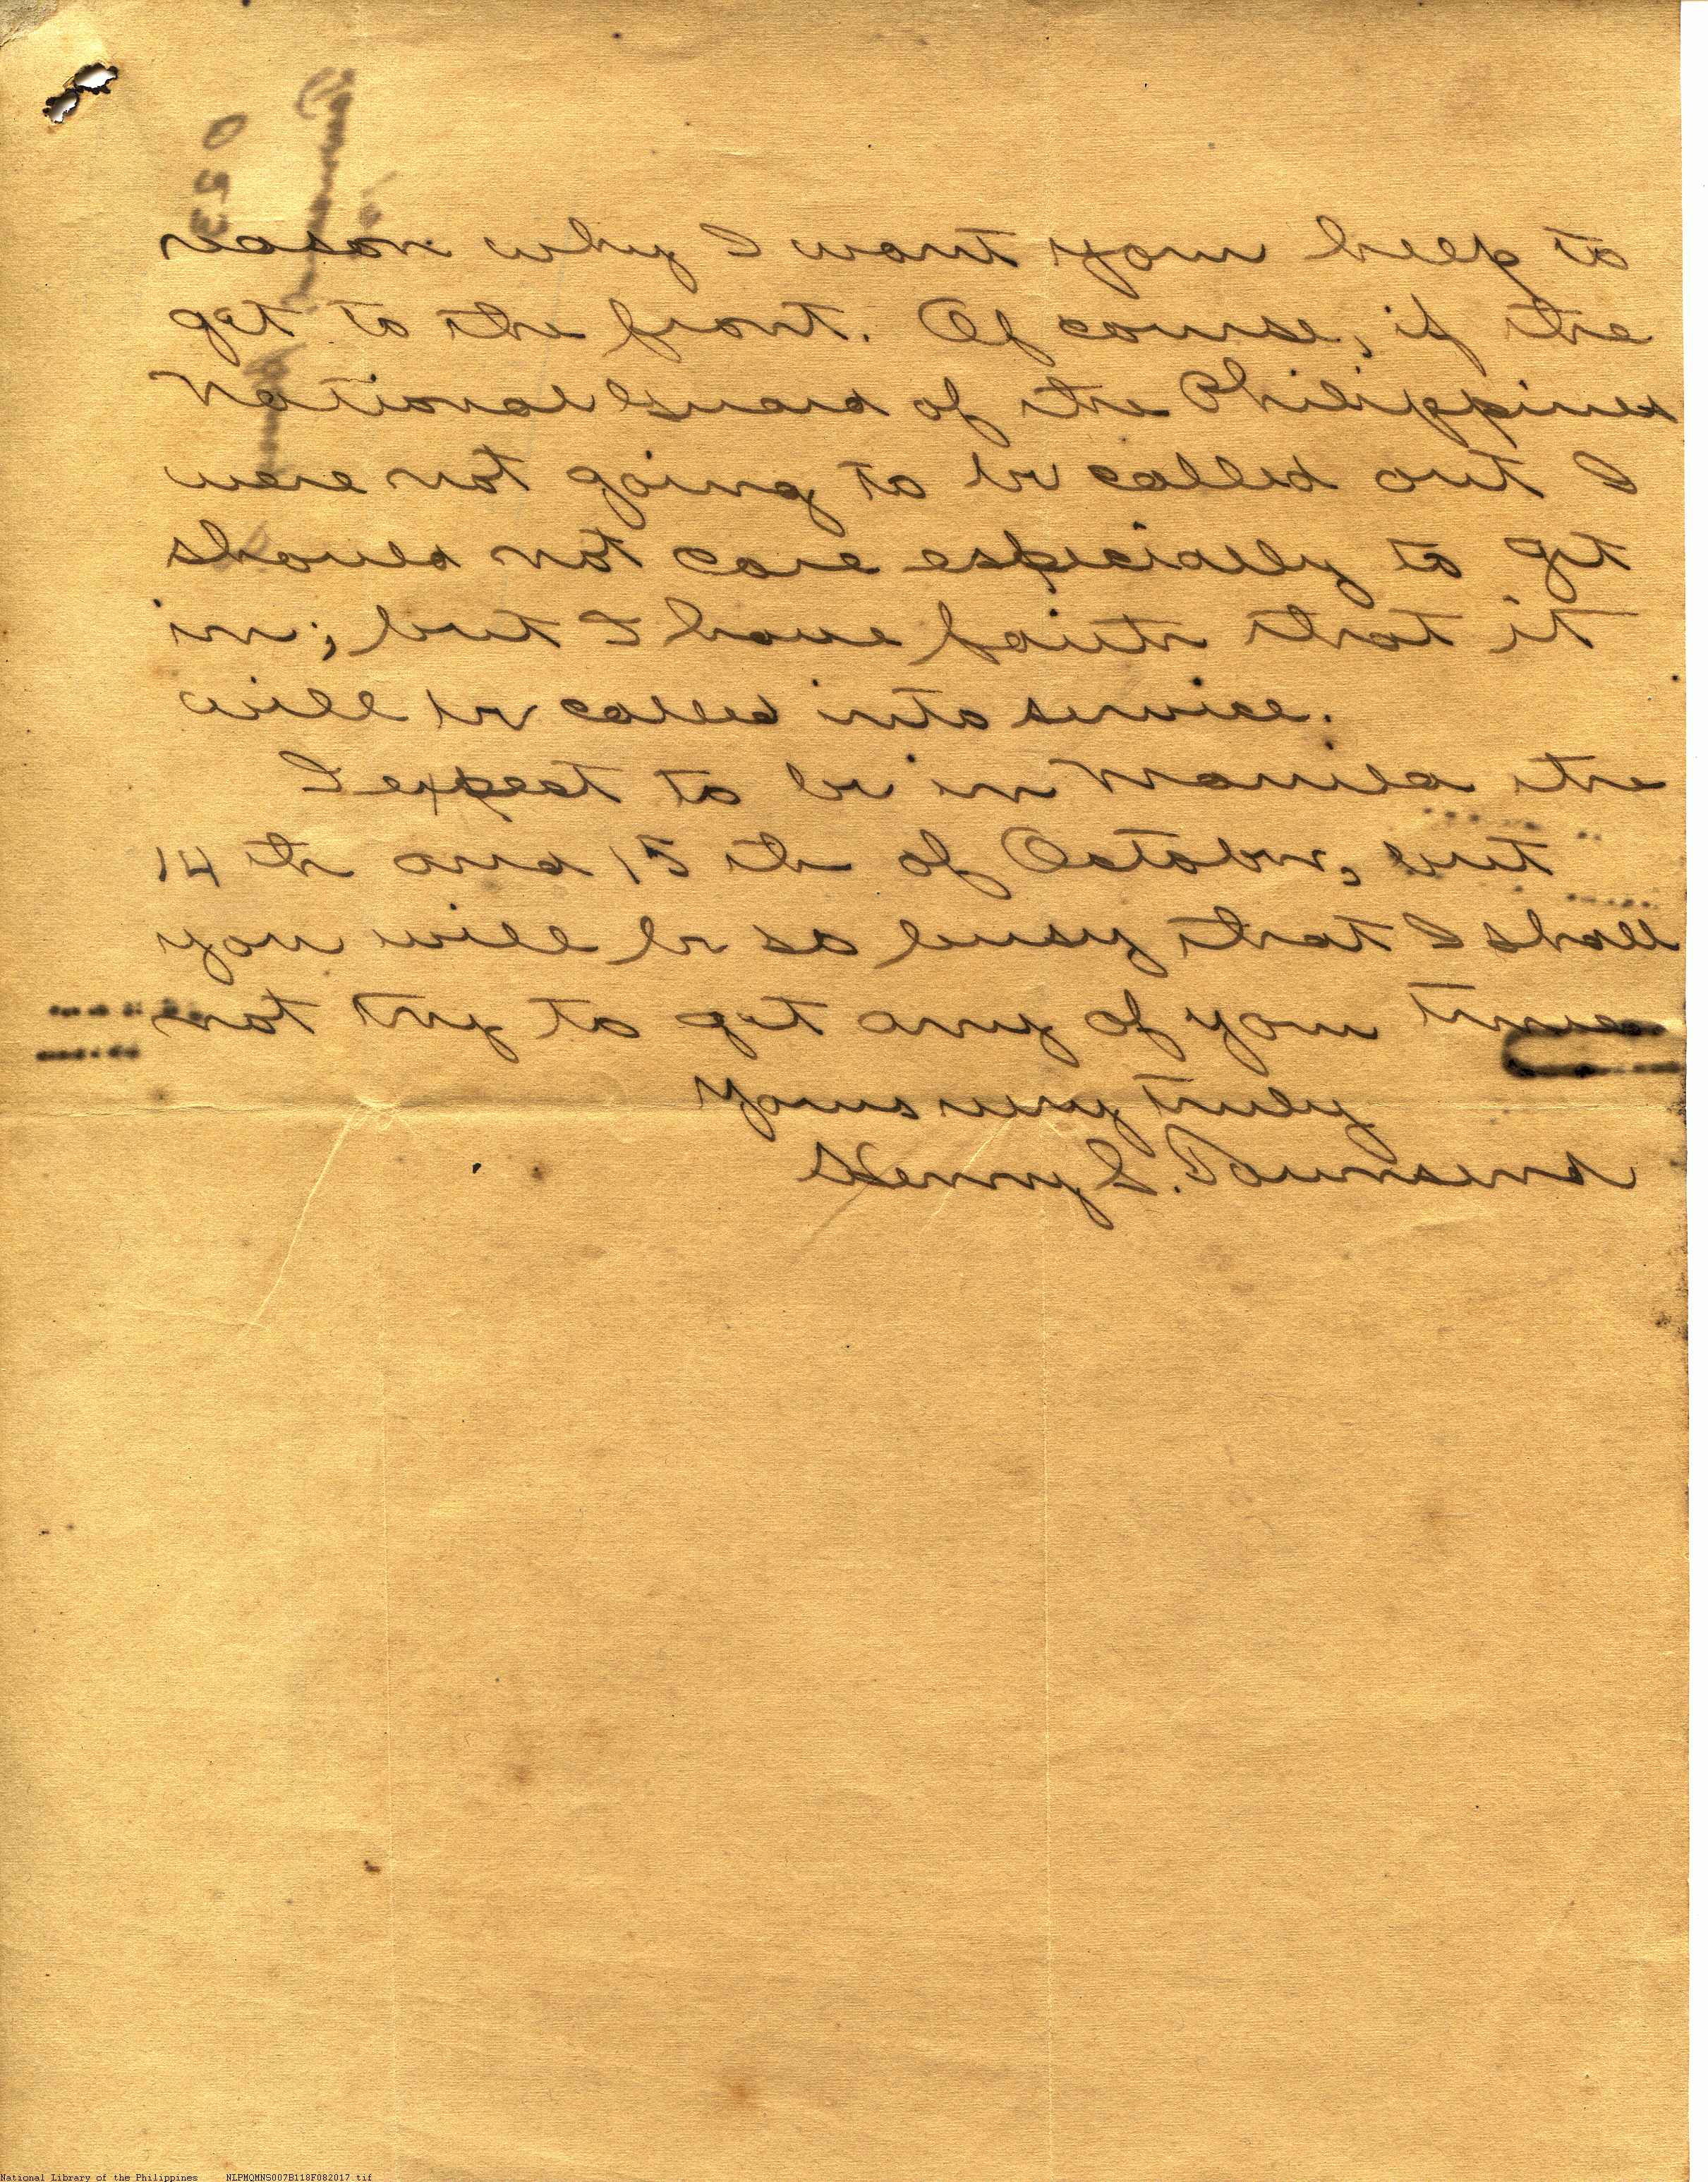 reason why I want your help to
get to the front. Of course, if the
National Guard of the Philippines
were not going to be called out I
should not care especially to get
in; but I have faith that it
will be called into service.
I expect to be in Manila the
14th and 15th of October, but
you will be so busy that I shall
not try to get any of your time
Yours very truly
Henry S. Townsend
National Library of the Philippines NLPMQMNS007B118F082017.tif